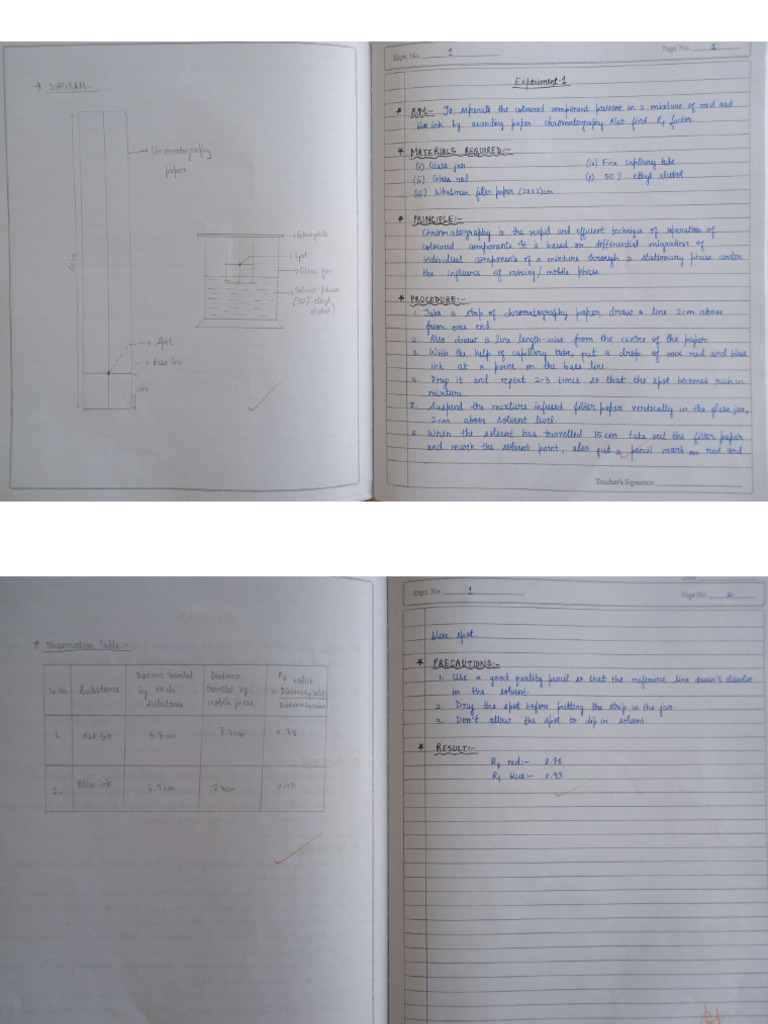 * DIAGRAM:-
Chromatography
paper
Glass plate
Spot
Glass jar
Solvent phase
(50% ethyl
alcohol)
Spot
Base line
2cm
Expt. No. 1
Page No. 1
Experiment-1
* AIM:- To seperate the coloured component present in a mixture of red and
blue ink by ascending paper chromatography Also find Rf factor.
* MATERIALS REQUIRED:-
(i) Glass jar (iv) Fine capillary tube
(ii) Glass rod (v) 50% ethyl alcohol
(iii) Whatman filter paper
* PRINCIPLE:-
Chromatography is the rapid and efficient technique of separation of
coloured components It is based on differential migration of
individual components of a mixture through a stationary phase under
the influence of moving/mobile phase.
* PROCEDURE:-
1. Take a strip of chromatography paper, draw a line 2cm above
from one end.
2. Also draw a line length-wise from the centre of the paper
3. With the help of capillary tube, put a drop of mix red and blue
ink at a point on the base line.
4. Dry it and repeat 2-3 times so that the spot becomes rich in
mixture.
5. Suspend the mixture infused filter paper vertically in the glass jar,
2cm above solvent level.
6. When the solvent has travelled 15cm take out the filter paper
and mark the solvent point, also put a pencil mark on red and
Teacher's Signature
* Observation Table:-
Sr.No. Substance Distance travelled by each substance Distance travelled by mobile phase Rf value = Distance by subs / Distance by solvent
1. Red ink 5.8cm 7.4cm 0.78
2. Blue ink 6.9cm 7.4cm 0.93
Expt. No. 1
Page No. 2
blue spot.
* PRECAUTIONS:-
1. Use a good quality pencil so that the reference line doesn't dissolve
in the solvent.
2. Dry the spot before putting the strip in the jar
3. Don't allow the spot to dip in solvent.
* RESULT:-
Rf red:- 0.78
Rf blue:- 0.93